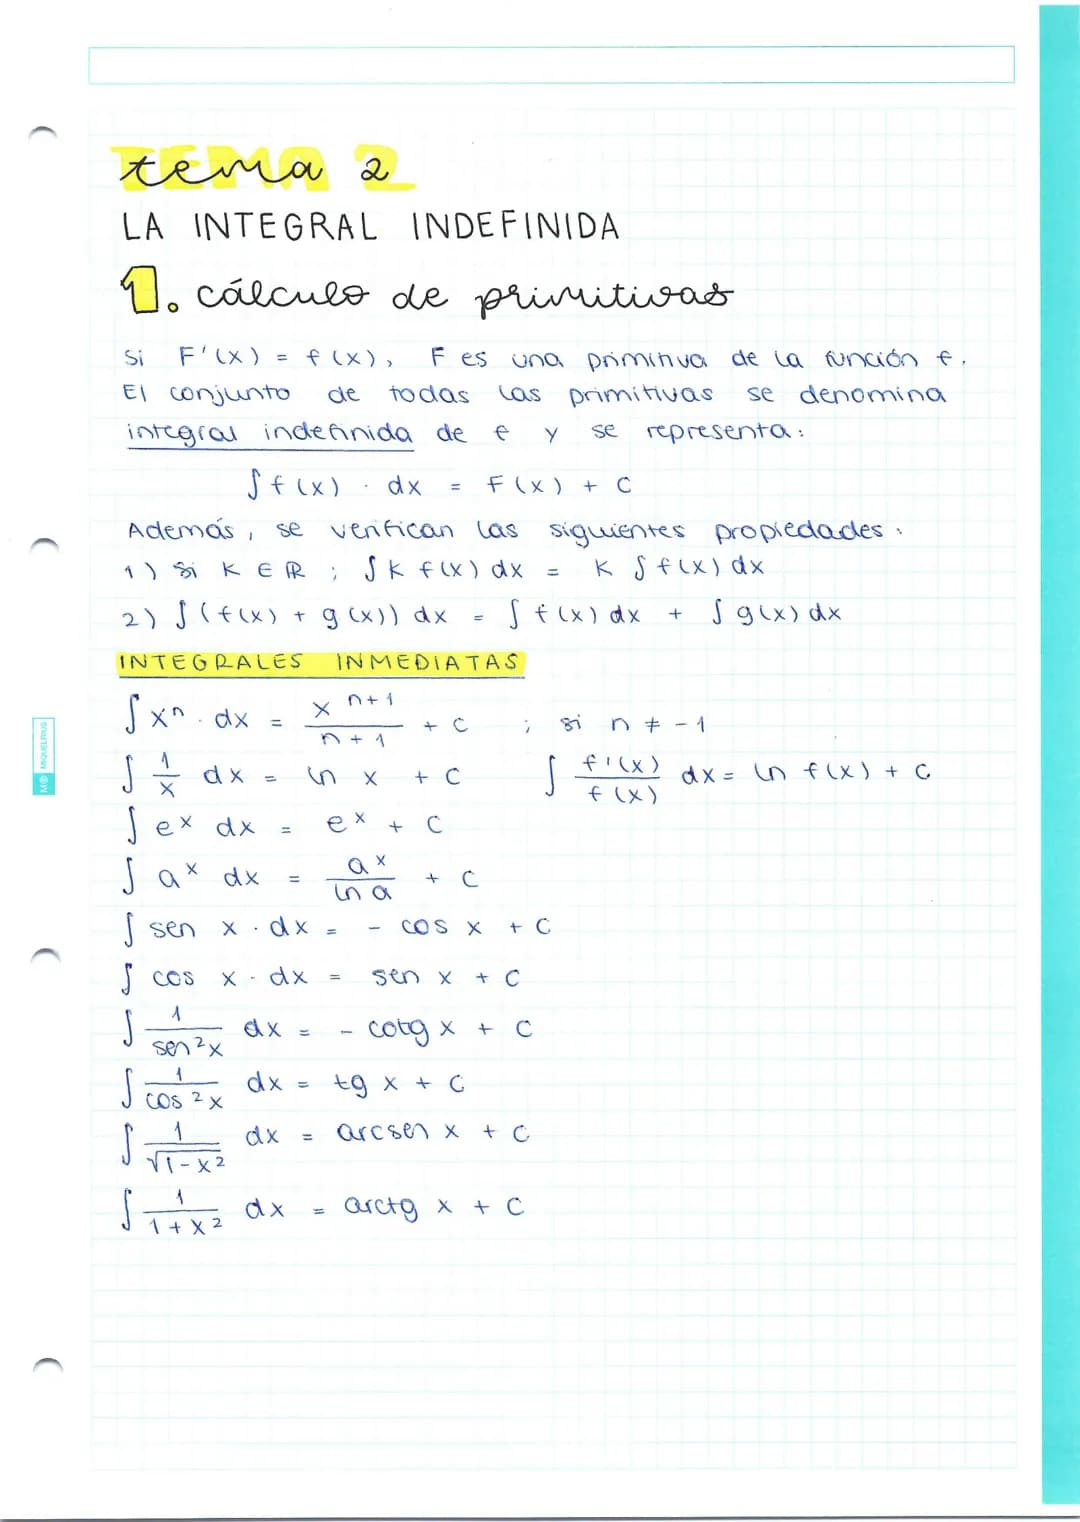 tema 2
LA INTEGRAL INDEFINIDA
1. cálculo de primitivas
Si F'(x) = f(x), F es una primitiva de la función f.
El conjunto de todas las primitivas se denomina
integral indefinida de f y se representa:
∫f(x) · dx = F(x) + C
Además, se verifican las siguientes propiedades:
1) Si K ∈ ℝ ; ∫K f(x) dx = K ∫f(x) dx
2) ∫(f(x) + g(x)) dx = ∫f(x) dx + ∫g(x) dx
INTEGRALES INMEDIATAS
∫xⁿ · dx = x^(n+1)/(n+1) + C ; si n ≠ -1
∫ 1/x dx = ln x + C ∫ f'(x)/f(x) dx = ln f(x) + C
∫e^x dx = e^x + C
∫a^x dx = a^x/ln a + C
∫sen x · dx = - cos x + C
∫cos x · dx = sen x + C
∫ 1/sen²x dx = - cotg x + C
∫ 1/cos²x dx = tg x + C
∫ 1/√(1-x²) dx = arcsen x + C
∫ 1/(1+x²) dx = arctg x + C
MIQUELRIUS